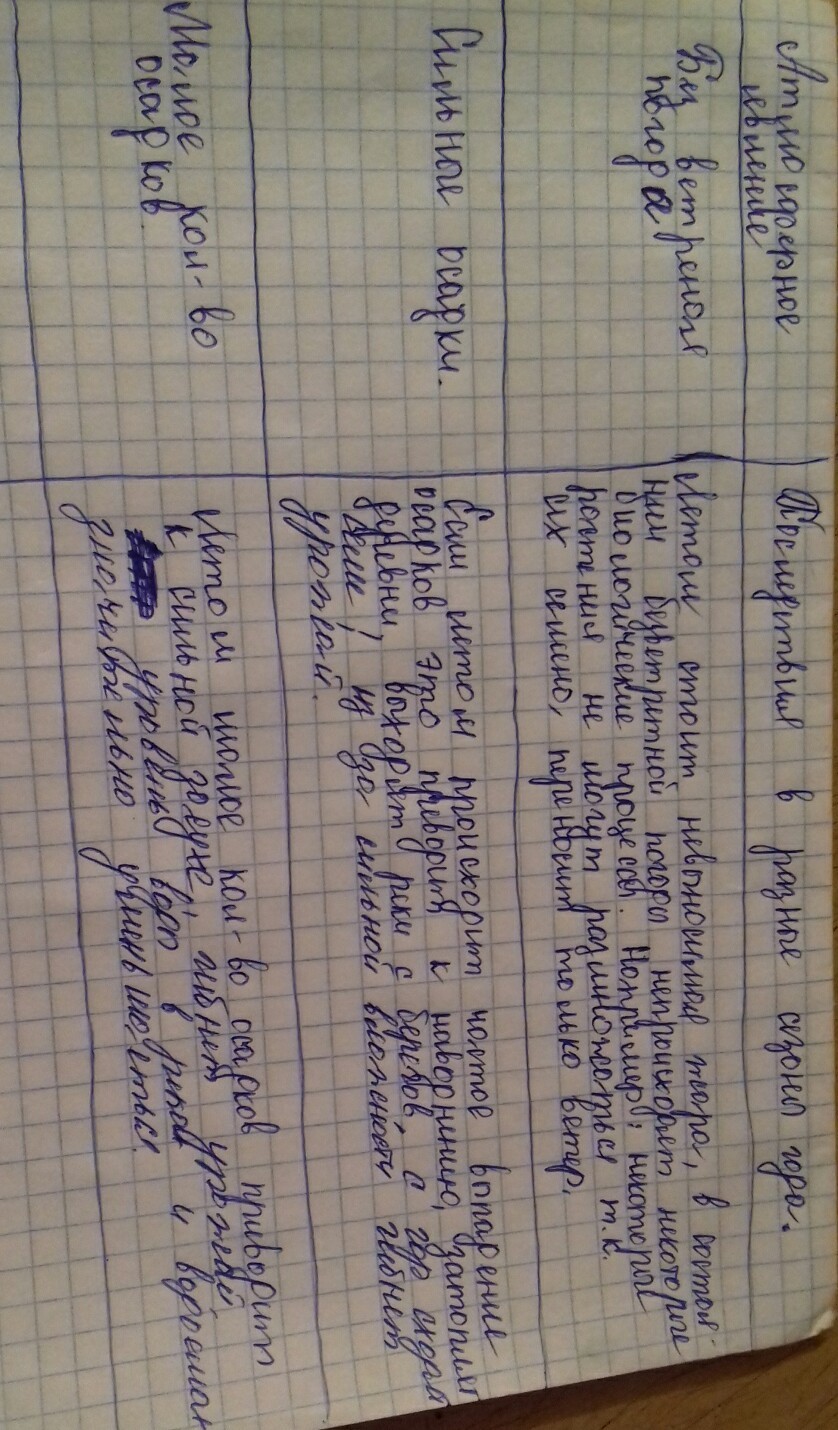 Атмосферное явление
Последствия в разные сезоны года.
Без ветреноя
погода
Летом стоит невыносимая жара, в состоя-
нии безветреной погоды непроисходет некоторые
биологические процесы. Например: некоторые
ростения не могут размножаться т.к.
их семена, переносит только ветер.
Сильные осадки.
Если летом происходит частое выпадение
осадков это приводит к наводнению, затопляет
деревни, выходят реки с берегов, с гор сходят
из за сильной влажности гибнет
урожай.
Малое кол-во
осадков
Летом малое кол-во осадков приводит
к сильной засухе, гибнет урожай
уровень вод в реках и водоемах
значительно уменьшается.